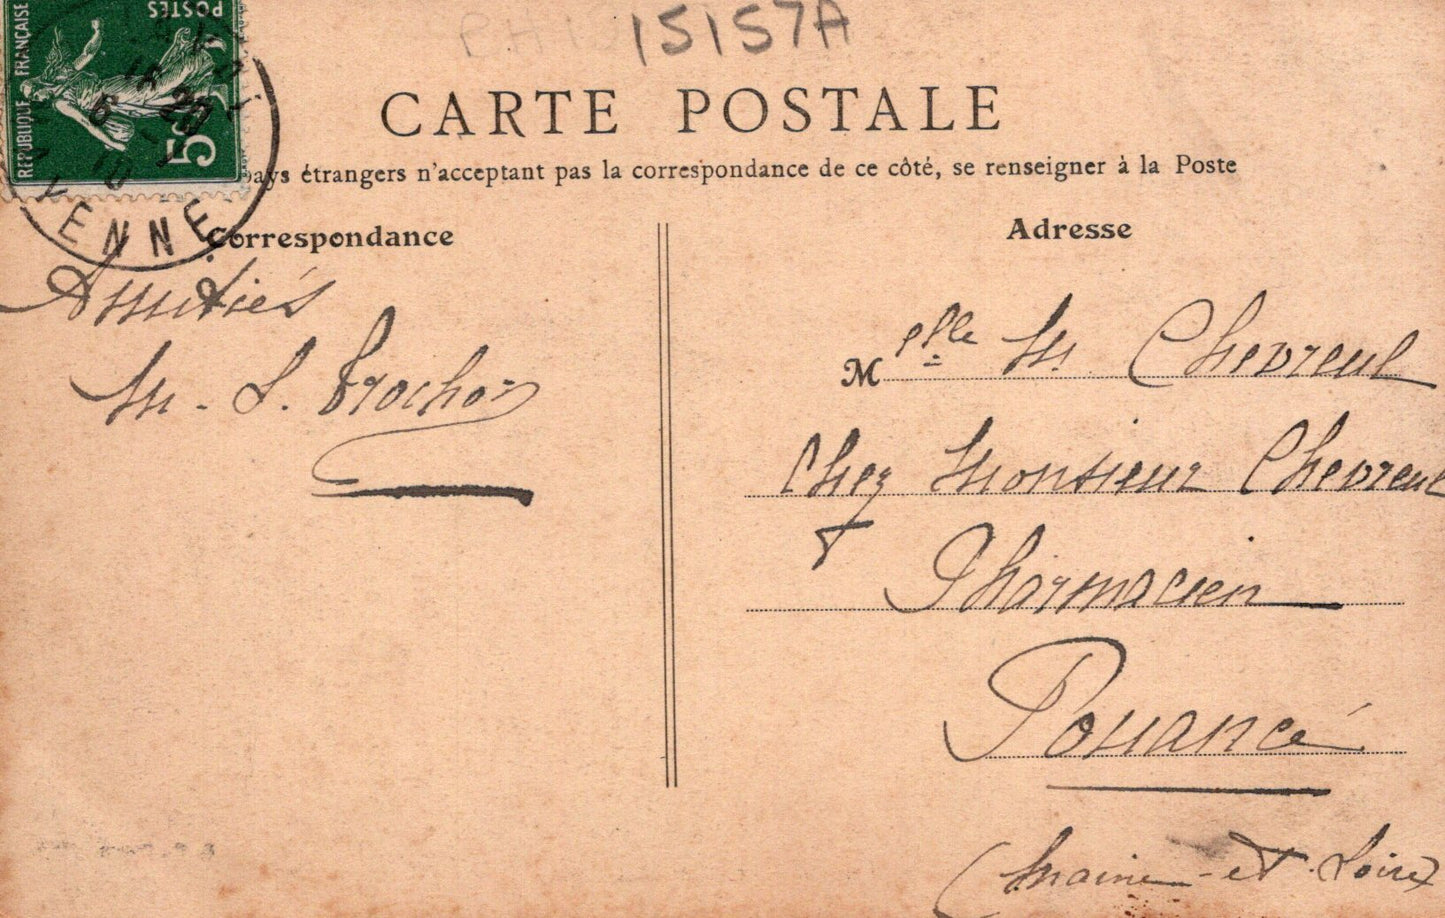 15157A
POSTES
REPUBLIQUE FRANÇAISE
5c
CARTE POSTALE
pays étrangers n'acceptant pas la correspondance de ce côté, se renseigner à la Poste
Correspondance
Adresse
Amitiés
M. L. Trochon
Melle M. Chevreul
Chez Monsieur Chevreul
Pharmacien
Pouancé
(Maine-et-Loire)